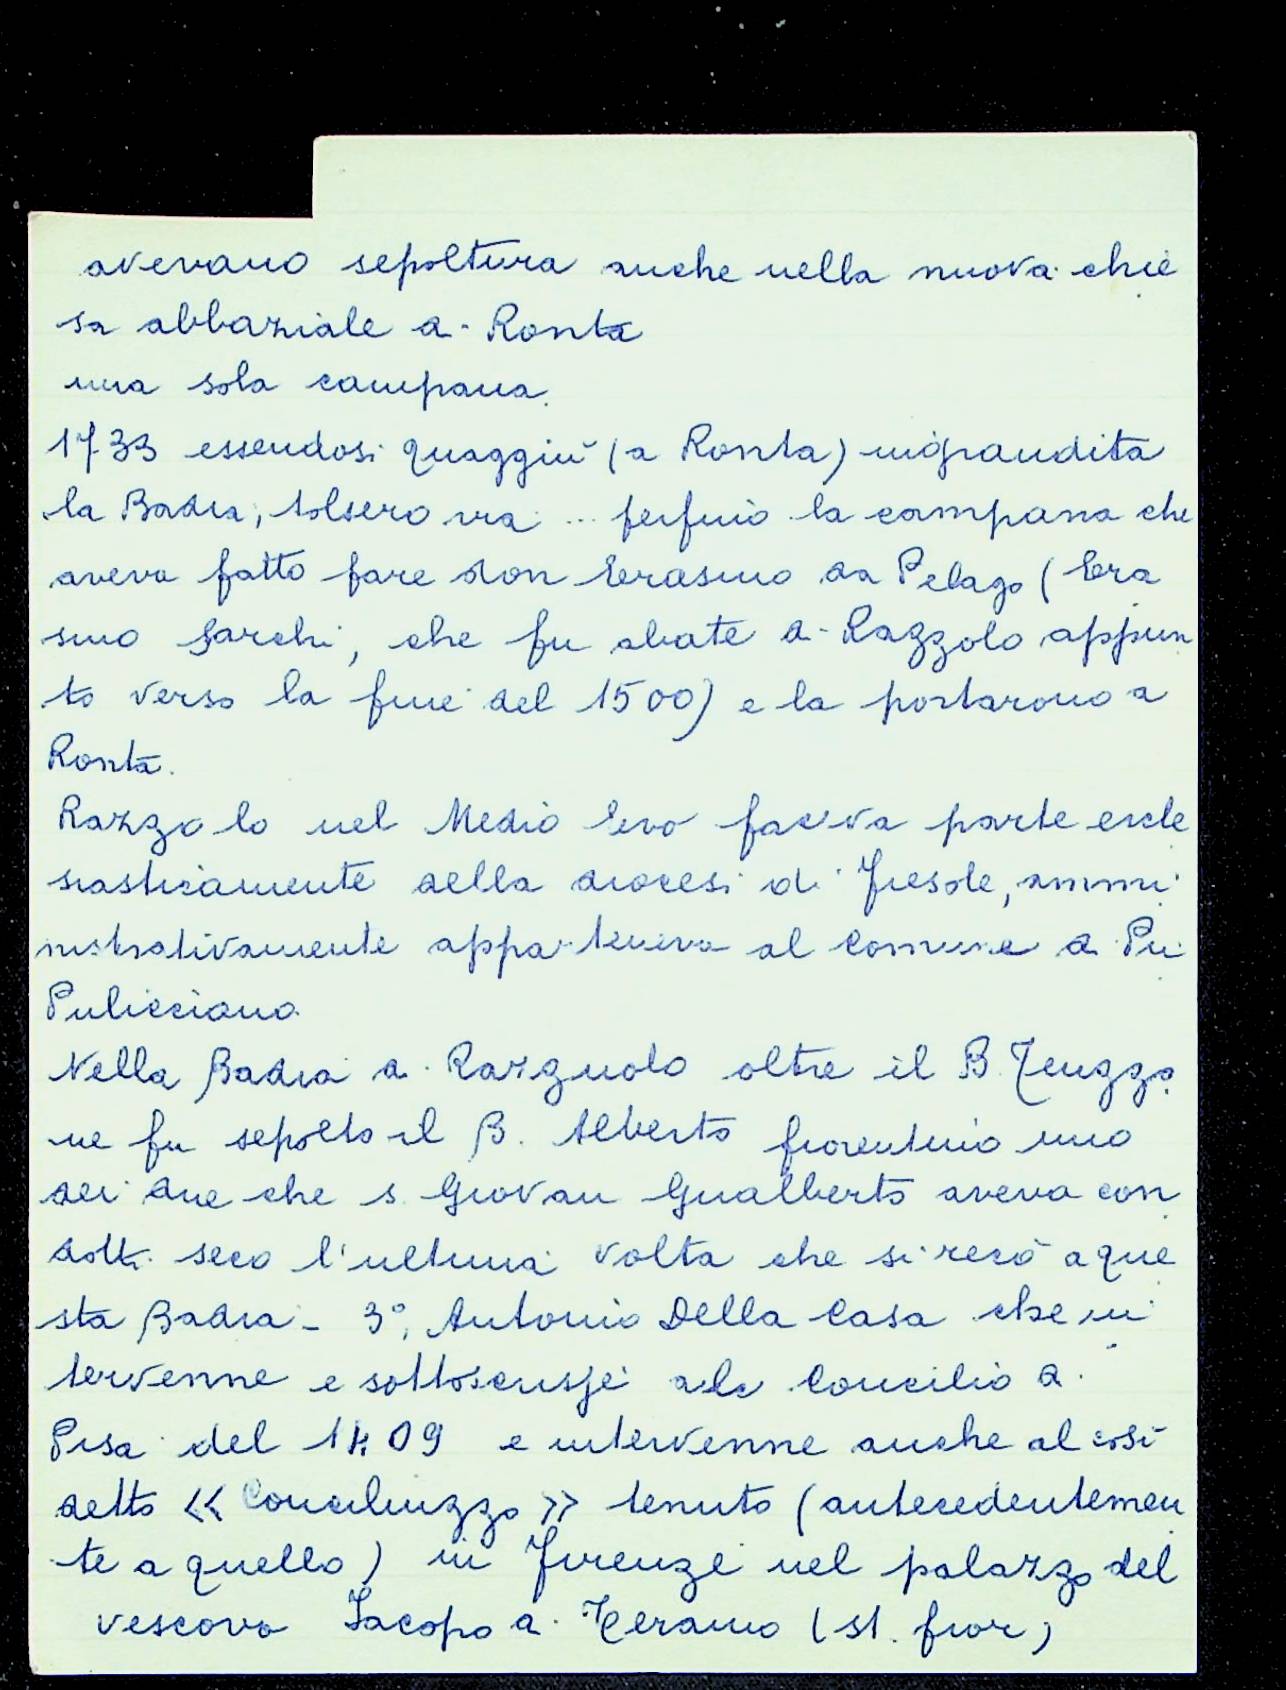 avevano sepoltura anche nella nuova chie
sa abbaziale di Ronta
una sola campana.
1733 essendosi quaggiù (a Ronta) ingrandita
la Badia, tolsero via ... perfino la campana che
aveva fatto fare don Erasmo da Pelago (Era
smo , che fu abate di Razzolo appun
to verso la fine del 1500) e la portarono a
Ronta.
Razzolo nel Medio Evo faceva parte eccle
siasticamente della diocesi di Fiesole, ammi
nistrativamente apparteneva al comune di Pu
Pulicciano
Nella Badia di Razzuolo oltre il B. Teuzzo
ne fu sepolto il B. Alberto fiorentino uno
dei due che s. Giovan Gualberto aveva con
dotti seco l'ultima volta che si recò a que
sta Badia - 3°, Antonio Della Casa che in
tervenne e sottoscrisse al Concilio di
Pisa del 1409 e intervenne anche al così
detto << Conciliuzzo >> tenuto (antecedentemen
te a quello) in Firenze nel palazzo del
vescovo Jacopo di Teramo (st. fior)